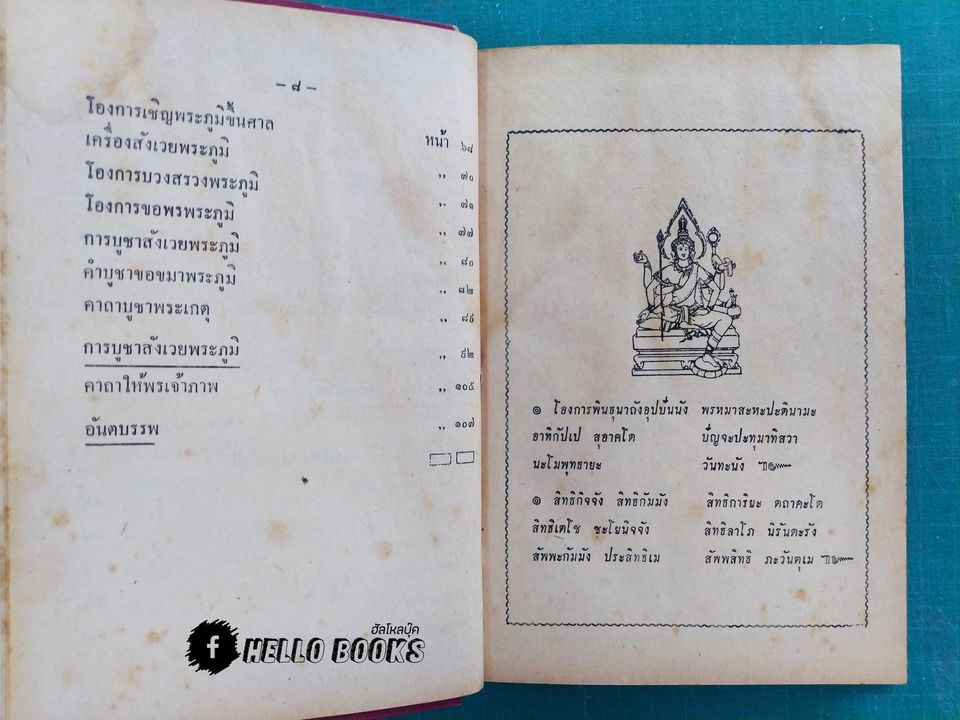 – ๘ –
โองการเชิญพระภูมิขึ้นศาล หน้า ๖๘
เครื่องสังเวยพระภูมิ ,, ๗๐
โองการบวงสรวงพระภูมิ ,, ๗๑
โองการขอพรพระภูมิ ,, ๗๗
การบูชาสังเวยพระภูมิ ,, ๘๐
คำบูชาขอขมาพระภูมิ ,, ๘๒
คาถาบูชาพระเกตุ ,, ๘๔
การบูชาสังเวยพระภูมิ ,, ๙๒
คาถาให้พรเจ้าภาพ ,, ๑๐๕
อันตบรรพ ,, ๑๐๗
ฮัลโหลบุ๊ค
f HELLO BOOKS
๏ โองการพินธุนาถังอุปบันนัง พรหมาสะหะปะตินามะ
อาทิกัปเป สุอาคโต ปัญจะปะทุมาทิสวา
นะโมพุทธายะ วันทะนัง ฯ๛
๏ สิทธิกิจจัง สิทธิกัมมัง สิทธิการิยะ ตถาคะโต
สิทธิเตโช ชะโยนิจจัง สิทธิลาโภ นิรันตะรัง
สัพพะกัมมัง ประสิทธิเม สัพพสิทธิ ภะวันตุเม ฯ๛